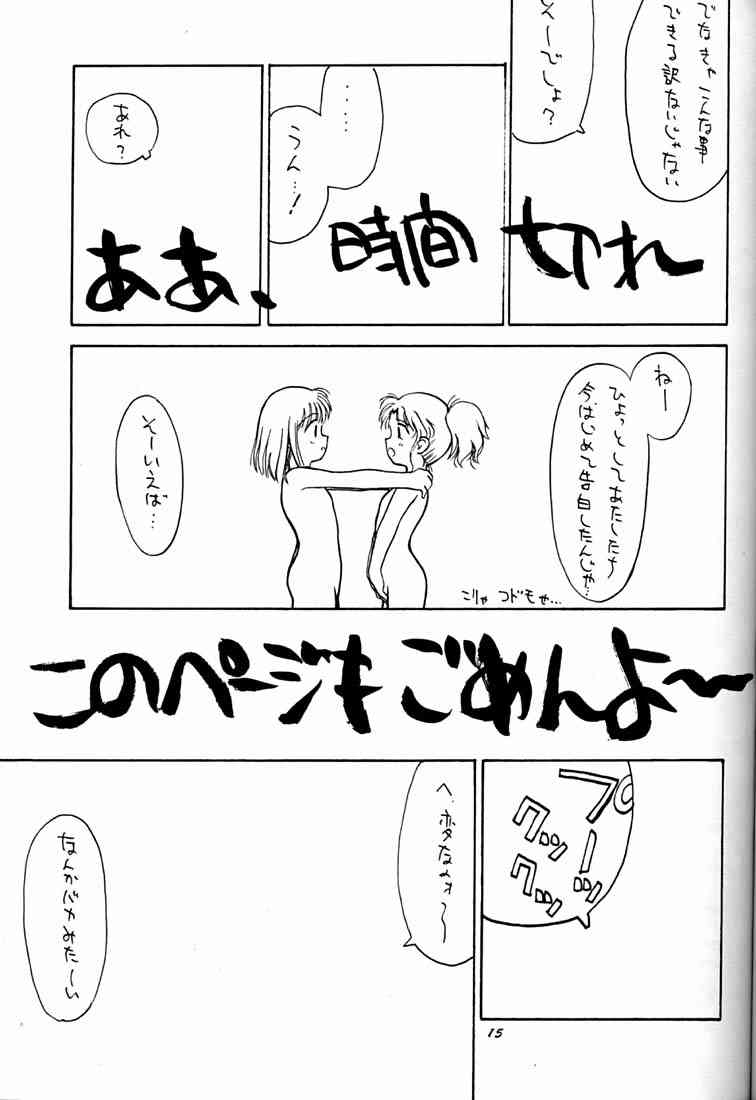 でなきゃこんな事
できる訳ないじゃない
そーでしょ?
‥‥
うん…!
あれ?
ああ、時間切れ〜
ねー
ひょっとしてあたしたち
今はじめて告白したんじゃ…
そーいえば…
こりゃ コドモや…
このページもごめんよ〜
プーッ
クッ
クッ
へ、変なの〜
なんかバカみたーい
15